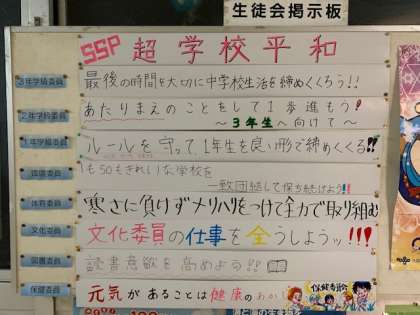 生徒会掲示板
SSP 超学校平和
3年学級委員
最後の時間を大切に中学校生活を締めくくろう!!
2年学級委員
あたりまえのことをして1歩進もう!
～3年生へ向けて～
1年学級委員
ルールを守って1年生を良い形で締めくくる!!
も50もきれいな学校を
一致団結して保ち続けよう!!
体育委員
寒さに負けずメリハリをつけて全力で取り組む
文化委員
文化委員の仕事を全うしようッ!!!
図書委員
読書意欲を高めよう!!
保健委員
元気があることは健康のあかし
保健委員会